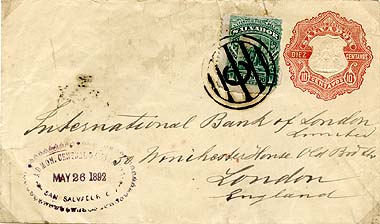 SALVADOR
SALVADOR
DIEZ CENTAVOS
10 10
International Bank of London
Limited
50 Winchester House Old Broad St
London
England
MAY 26 1892
SAN SALVADOR